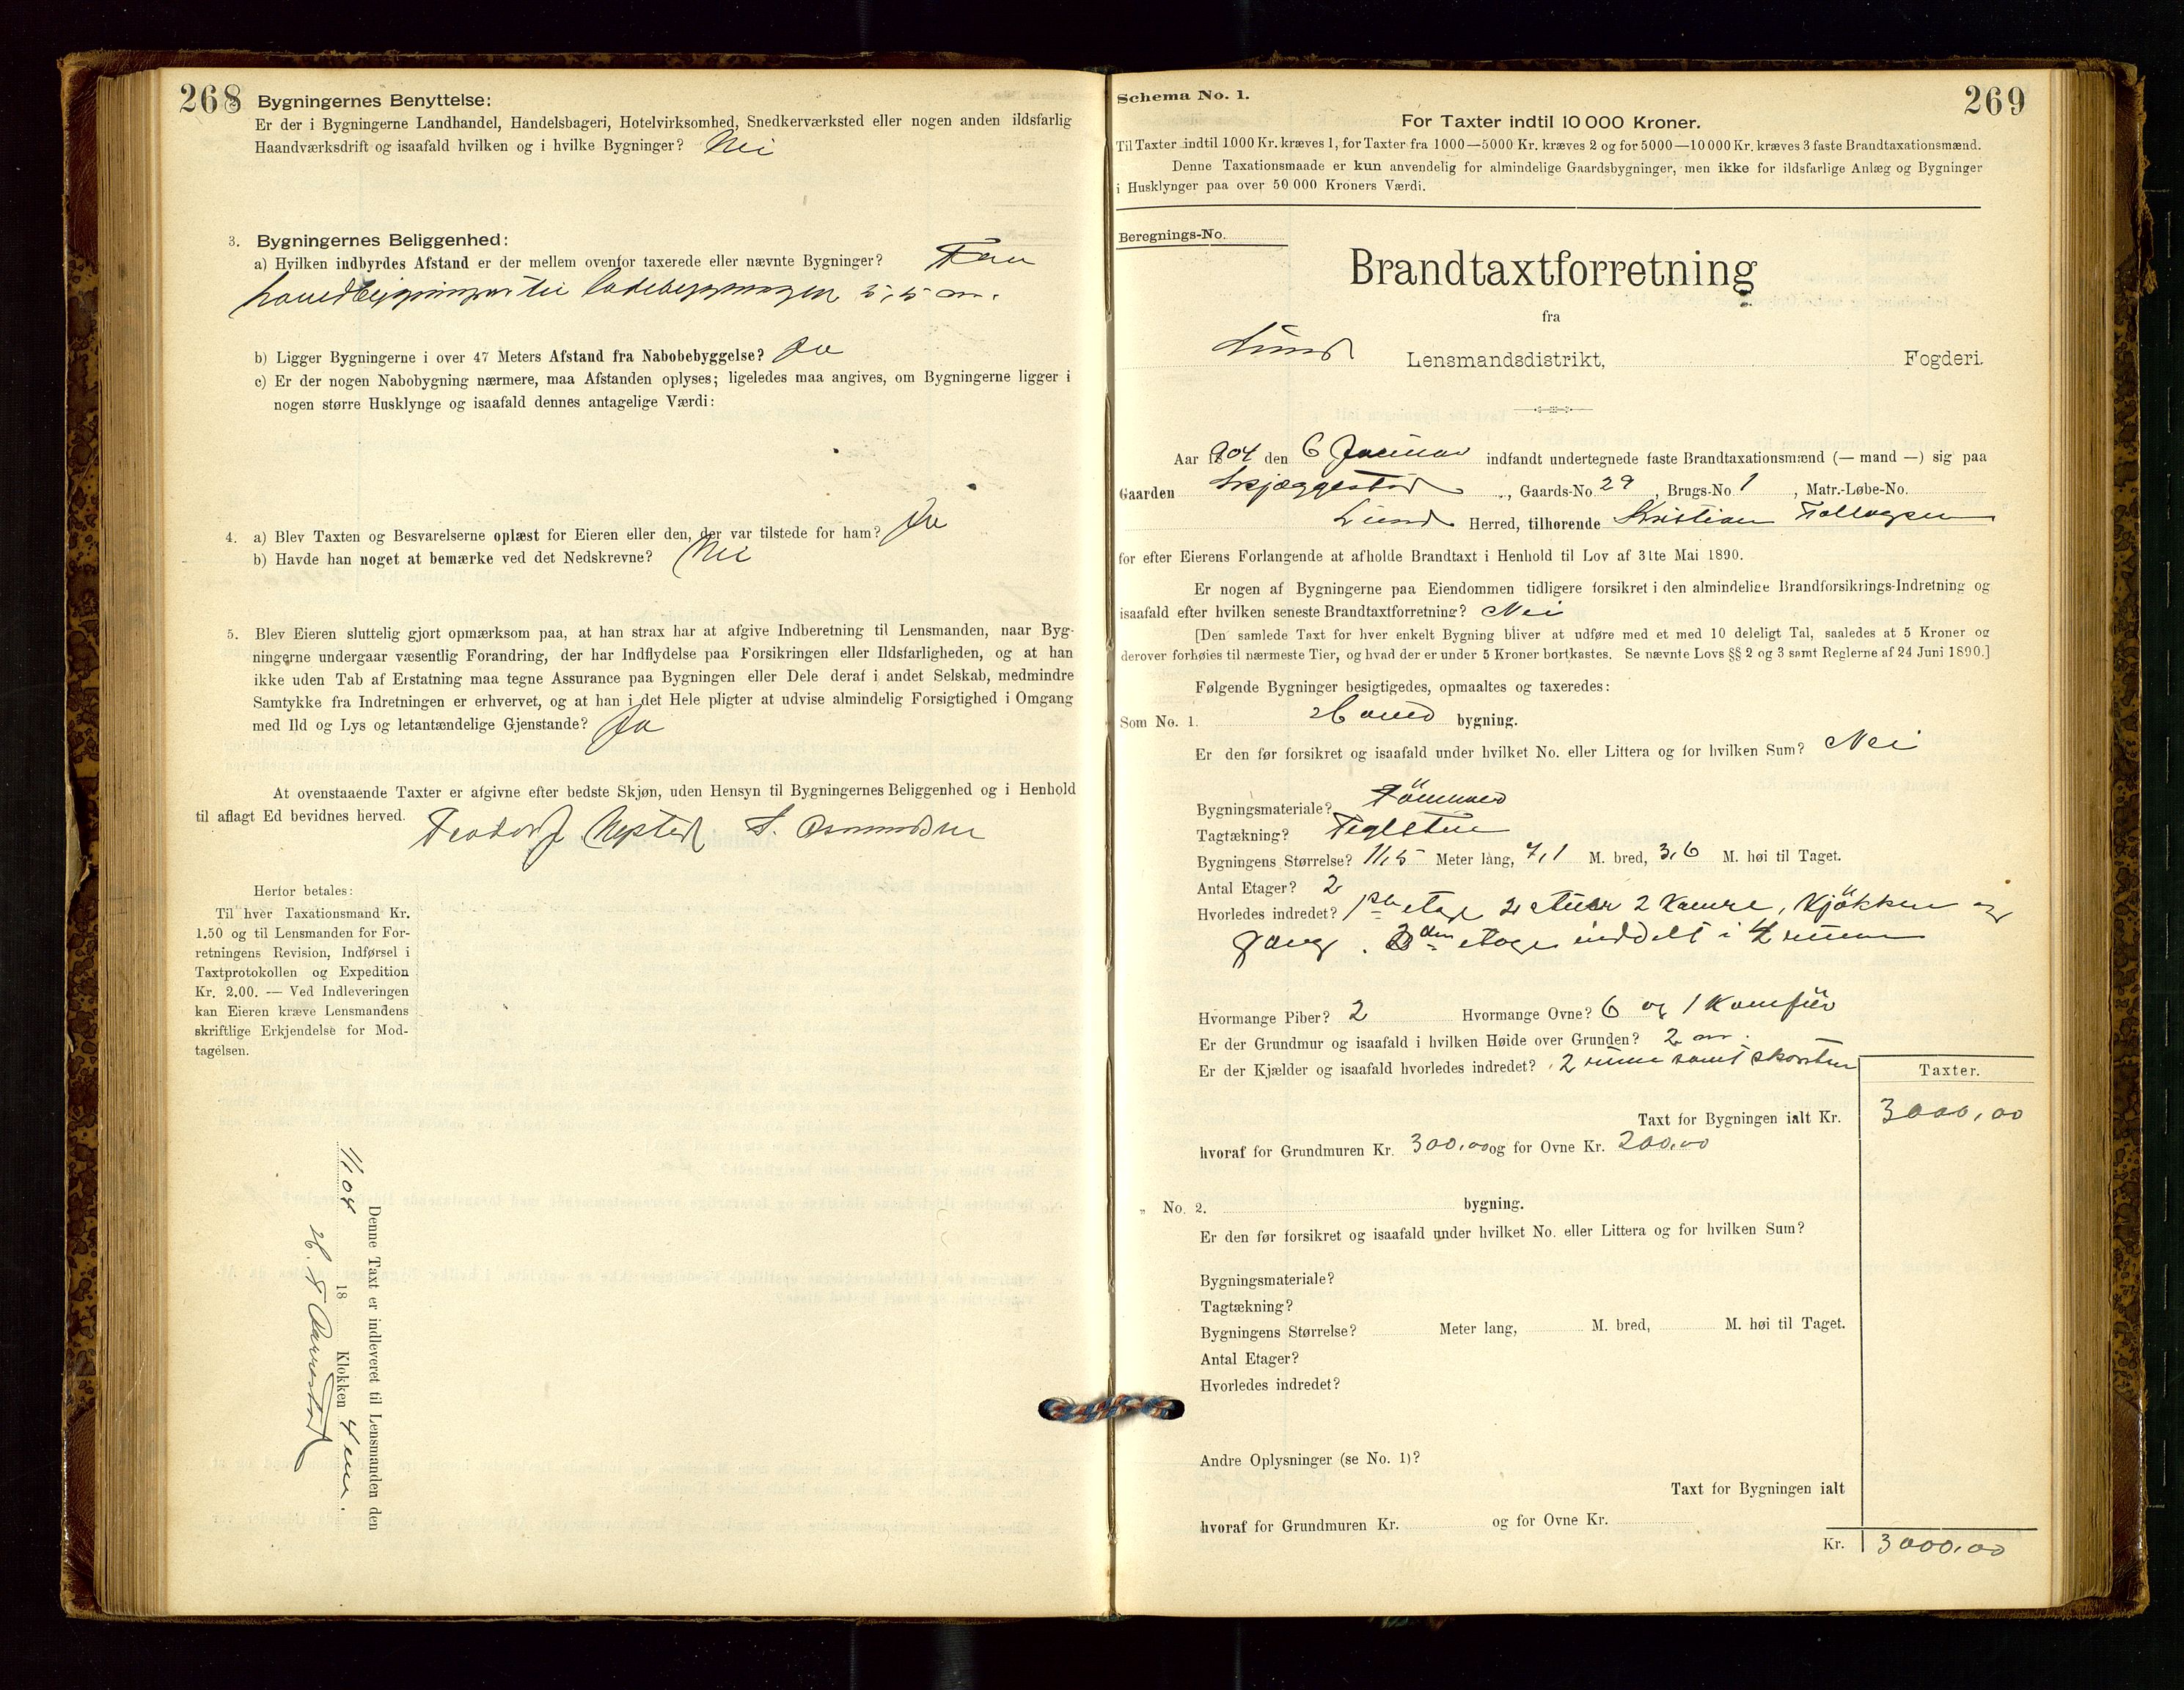 268
Bygningernes Benyttelse:
Er der i Bygningerne Landhandel, Handelsbageri, Hotelvirksomhed, Snedkerværksted eller nogen anden ildsfarlig
Haandværksdrift og isaafald hvilken og i hvilke Bygninger? Nei
3. Bygningernes Beliggenhed:
a) Hvilken indbyrdes Afstand er der mellem ovenfor taxerede eller nævnte Bygninger? Fra
hovedbygningen til ladebygningen 5,5 m.
b) Ligger Bygningerne i over 47 Meters Afstand fra Nabobebyggelse? Ja
c) Er der nogen Nabobygning nærmere, maa Afstanden oplyses; ligeledes maa angives, om Bygningerne ligger i
nogen større Husklynge og isaafald dennes antagelige Værdi:
4. a) Blev Taxten og Besvarelserne oplæst for Eieren eller den, der var tilstede for ham? Ja
b) Havde han noget at bemærke ved det Nedskrevne? Nei
5. Blev Eieren sluttelig gjort opmærksom paa, at han strax har at afgive Indberetning til Lensmanden, naar Byg-
ningerne undergaar væsentlig Forandring, der har Indflydelse paa Forsikringen eller Ildsfarligheden, og at han
ikke uden Tab af Erstatning maa tegne Assurance paa Bygningen eller Dele deraf i andet Selskab, medmindre
Samtykke fra Indretningen er erhvervet, og at han i det Hele pligter at udvise almindelig Forsigtighed i Omgang
med Ild og Lys og letantændelige Gjenstande? Ja
At ovenstaaende Taxter er afgivne efter bedste Skjøn, uden Hensyn til Bygningernes Beliggenhed og i Henhold
til aflagt Ed bevidnes herved. S. Osmundsen
Herfor betales:
Til hver Taxationsmand Kr.
1.50 og til Lensmanden for For-
retningens Revision, Indførsel i
Taxtprotokollen og Expedition
Kr. 2.00. — Ved Indleveringen
kan Eieren kræve Lensmandens
skriftlige Erkjendelse for Mod-
tagelsen.
Denne Taxt er indleveret til Lensmanden den
04 18 Klokken 4 em.
Aarrestad
269
Schema No. 1.
For Taxter indtil 10 000 Kroner.
Til Taxter indtil 1000 Kr. kræves 1, for Taxter fra 1000—5000 Kr. kræves 2 og for 5000—10 000 Kr. kræves 3 faste Brandtaxationsmænd.
Denne Taxationsmaade er kun anvendelig for almindelige Gaardsbygninger, men ikke for ildsfarlige Anlæg og Bygninger
i Husklynger paa over 50 000 Kroners Værdi.
Beregnings-No.
Brandtaxtforretning
fra
Lund Lensmandsdistrikt, Fogderi.
Aar 1904 den 6 Januar indfandt undertegnede faste Brandtaxationsmænd (— mand —) sig paa
Gaarden Skjæggestad, Gaards-No. 29, Brugs-No. 1, Matr.-Løbe-No.
Lund Herred, tilhørende Kristian Tollagsen
for efter Eierens Forlangende at afholde Brandtaxt i Henhold til Lov af 31te Mai 1890.
Er nogen af Bygningerne paa Eiendommen tidligere forsikret i den almindelige Brandforsikrings-Indretning og
isaafald efter hvilken seneste Brandtaxtforretning? Nei
[Den samlede Taxt for hver enkelt Bygning bliver at udføre med et med 10 deleligt Tal, saaledes at 5 Kroner og
derover forhøies til nærmeste Tier, og hvad der er under 5 Kroner bortkastes. Se nævnte Lovs §§ 2 og 3 samt Reglerne af 24 Juni 1890.]
Følgende Bygninger besigtigedes, opmaaltes og taxeredes:
Som No. 1. Hoved bygning.
Er den før forsikret og isaafald under hvilket No. eller Littera og for hvilken Sum? Nei
Bygningsmateriale? Tömmer
Tagtækning? Teglsten
Bygningens Størrelse? 11,5 Meter lang, 7,1 M. bred, 3,6 M. høi til Taget.
Antal Etager? 2
Hvorledes indredet? 1ste etage 2 stuer 2 Kamre, Kjökken og
gang. 2den etage inddelt i 4 rum
Hvormange Piber? 2 Hvormange Ovne? 6 og 1 Komfür
Er der Grundmur og isaafald i hvilken Høide over Grunden? 2 m.
Er der Kjælder og isaafald hvorledes indredet? 2 rum samt skorsten
Taxter.
Taxt for Bygningen ialt Kr. 3000,00
hvoraf for Grundmuren Kr. 300,00 og for Ovne Kr. 200,00
„ No. 2. bygning.
Er den før forsikret og isaafald under hvilket No. eller Littera og for hvilken Sum?
Bygningsmateriale?
Tagtækning?
Bygningens Størrelse? Meter lang, M. bred, M. høi til Taget.
Antal Etager?
Hvorledes indredet?
Andre Oplysninger (se No. 1)?
Taxt for Bygningen ialt
hvoraf for Grundmuren Kr. og for Ovne Kr.
Kr. 3000,00